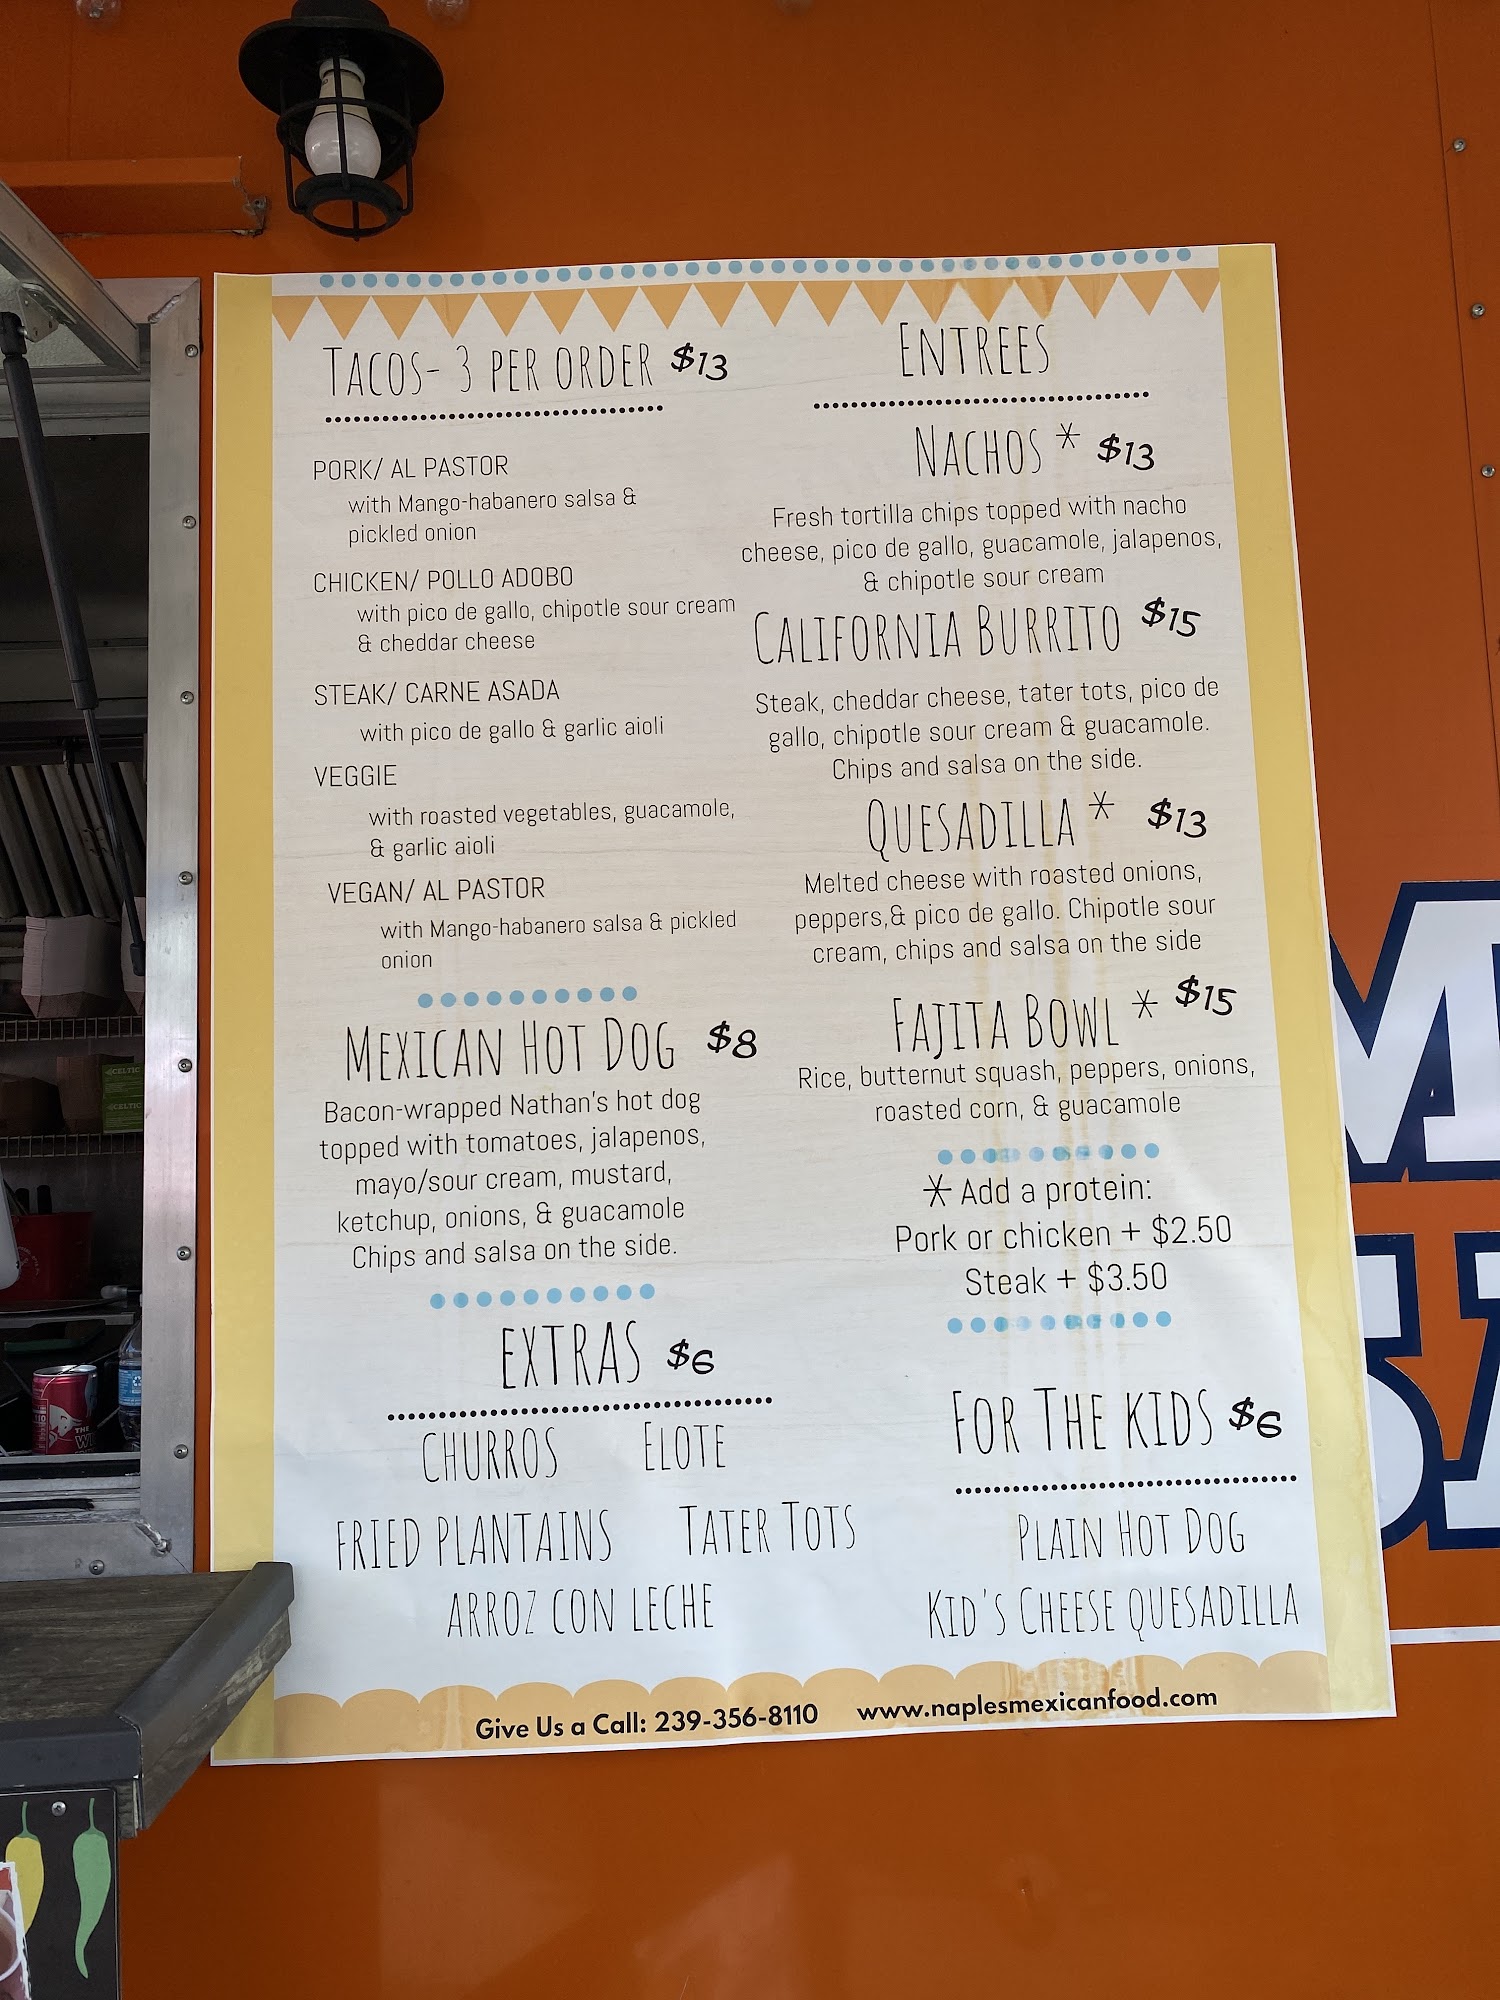 TACOS- 3 PER ORDER $13
PORK/ AL PASTOR
with Mango-habanero salsa &
pickled onion
CHICKEN/ POLLO ADOBO
with pico de gallo, chipotle sour cream
& cheddar cheese
STEAK/ CARNE ASADA
with pico de gallo & garlic aioli
VEGGIE
with roasted vegetables, guacamole,
& garlic aioli
VEGAN/ AL PASTOR
with Mango-habanero salsa & pickled
onion
MEXICAN HOT DOG $8
Bacon-wrapped Nathan's hot dog
topped with tomatoes, jalapenos,
mayo/sour cream, mustard,
ketchup, onions, & guacamole
Chips and salsa on the side.
EXTRAS $6
CHURROS ELOTE
FRIED PLANTAINS TATER TOTS
ARROZ CON LECHE
ENTREES
NACHOS * $13
Fresh tortilla chips topped with nacho
cheese, pico de gallo, guacamole, jalapenos,
& chipotle sour cream
CALIFORNIA BURRITO $15
Steak, cheddar cheese, tater tots, pico de
gallo, chipotle sour cream & guacamole.
Chips and salsa on the side.
QUESADILLA * $13
Melted cheese with roasted onions,
peppers,& pico de gallo. Chipotle sour
cream, chips and salsa on the side
FAJITA BOWL * $15
Rice, butternut squash, peppers, onions,
roasted corn, & guacamole
* Add a protein:
Pork or chicken + $2.50
Steak + $3.50
FOR THE KIDS $6
PLAIN HOT DOG
KID'S CHEESE QUESADILLA
Give Us a Call: 239-356-8110 www.naplesmexicanfood.com
CELTIC
CELTIC
THE